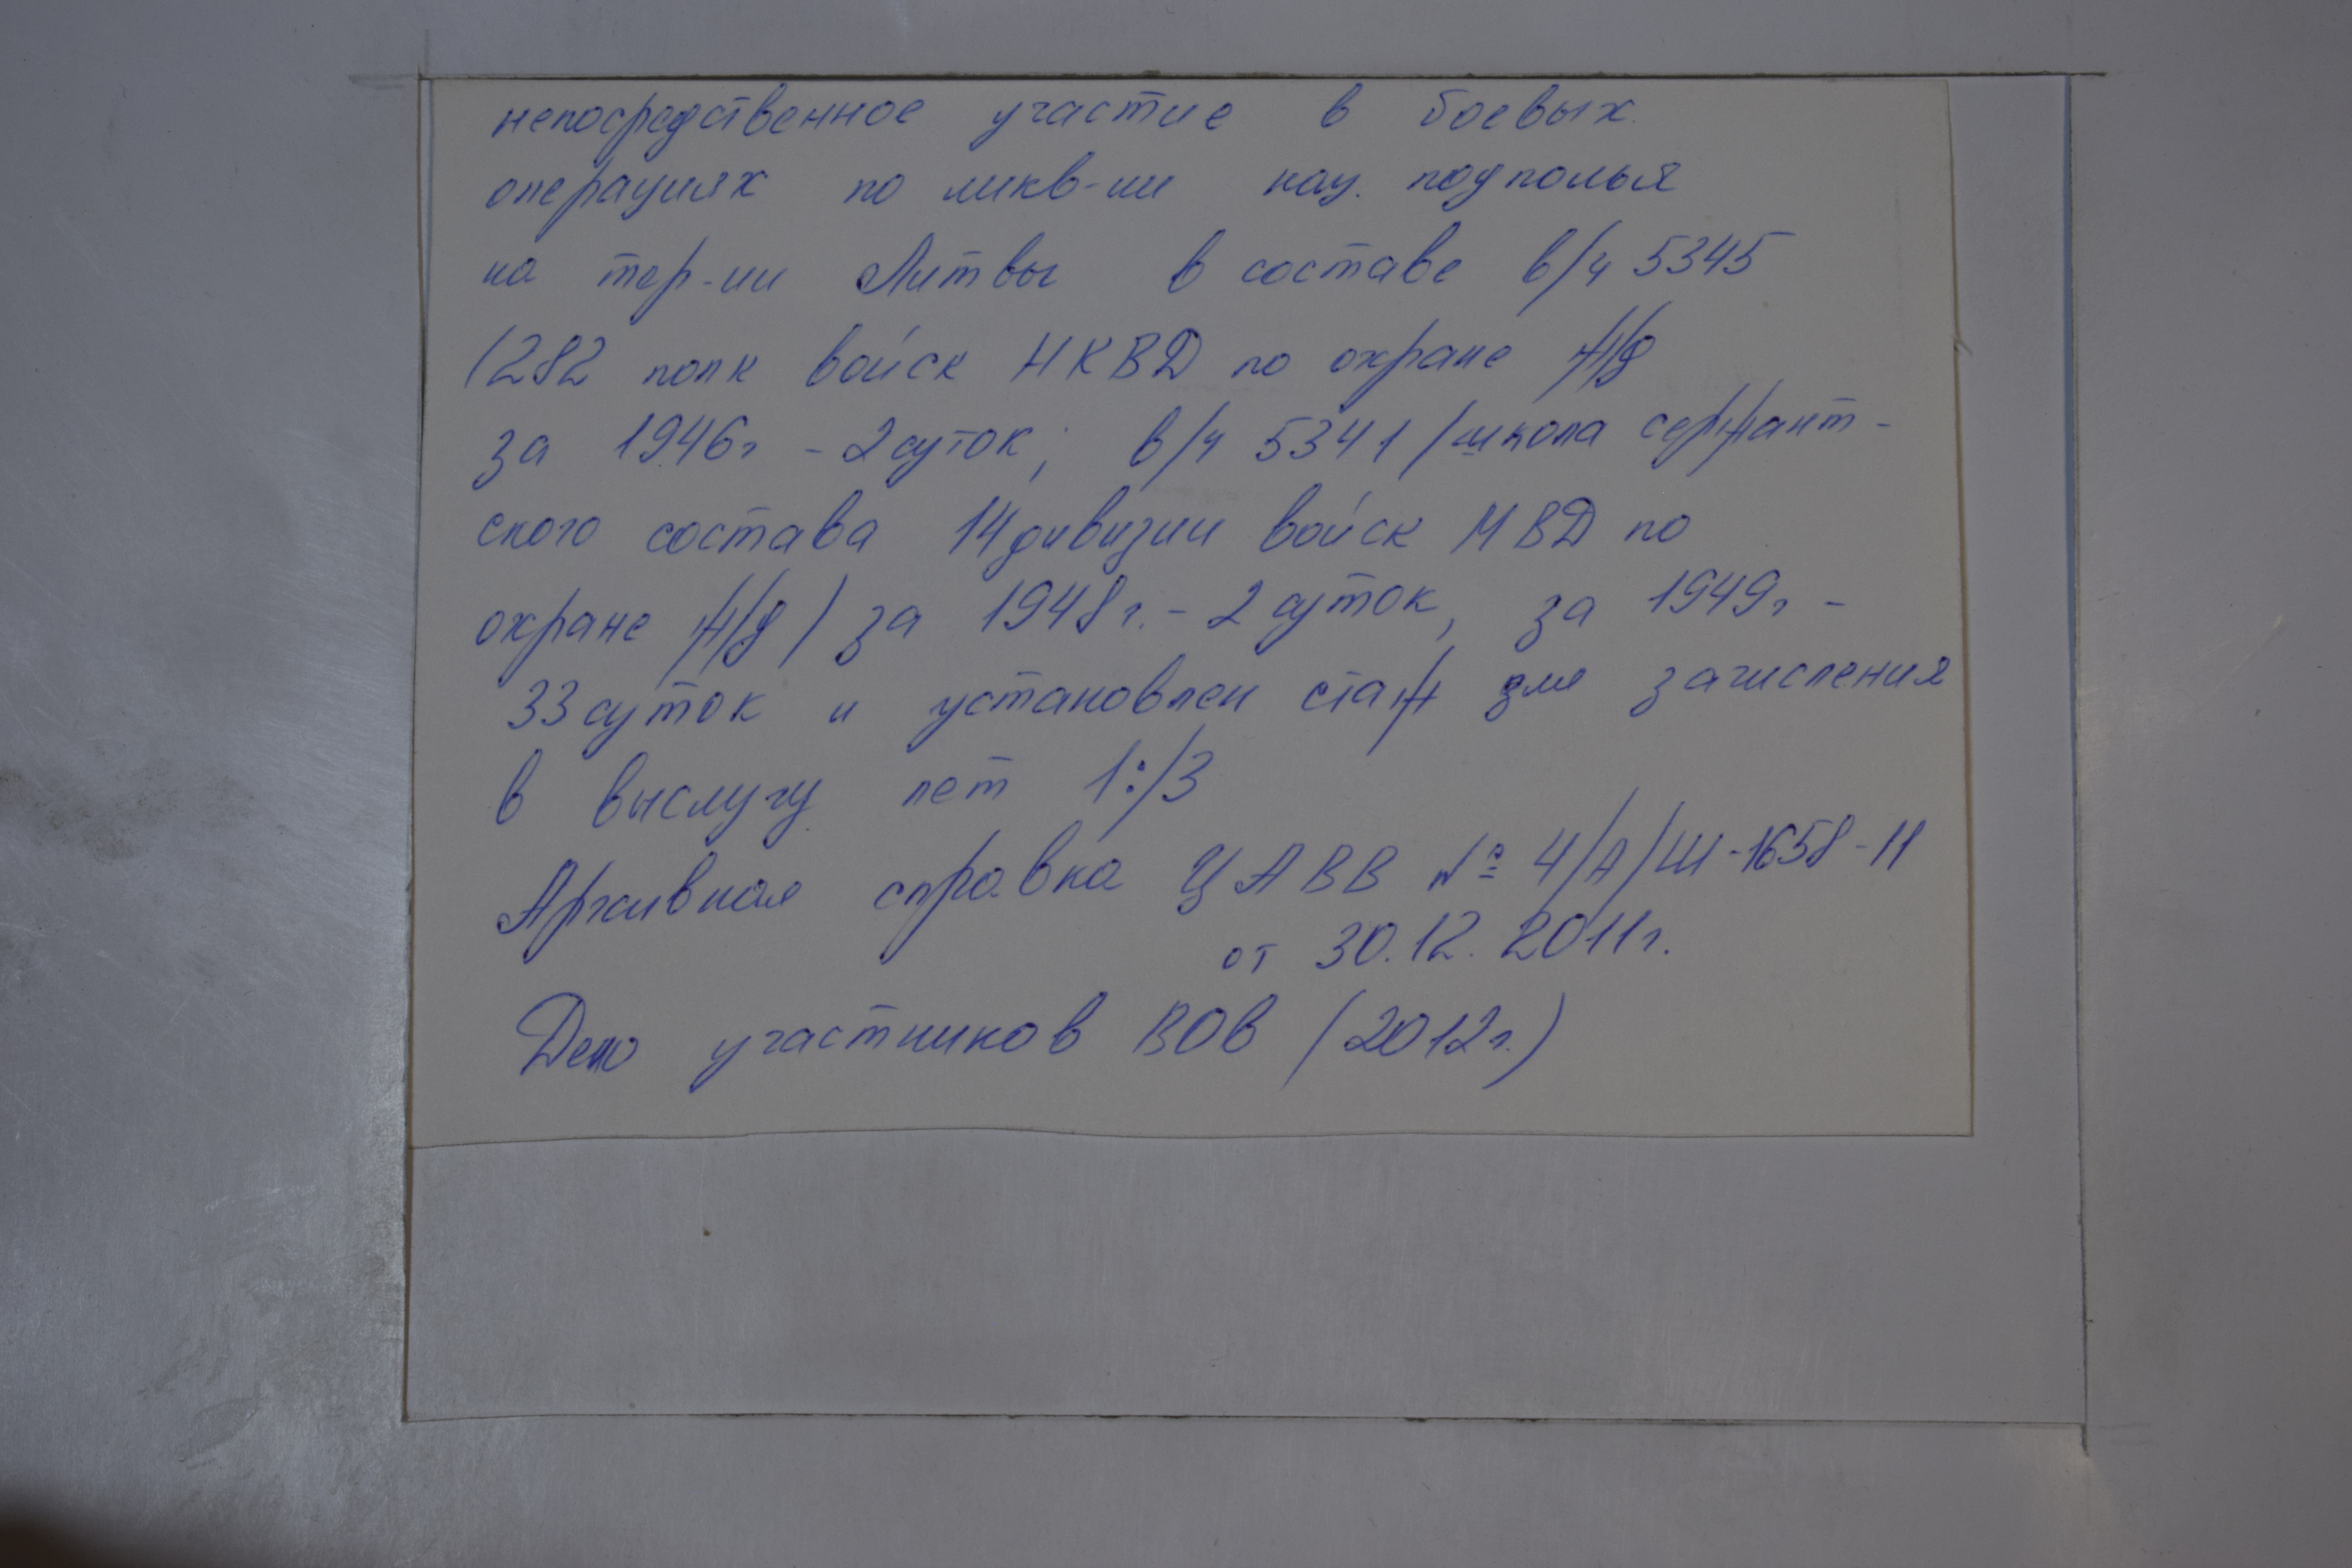 непосредственное участие в боевых
операциях по ликв-ии нац. подполья
на тер-ии Литвы в составе в/ч 5345
(282 полк войск НКВД по охране ж/д
за 1946г - 2 суток; в/ч 5341 (школа сержант-
ского состава 14 дивизии войск МВД по
охране ж/д) за 1948г. - 2 суток, за 1949г -
33 суток и установлен стаж для зачисления
в выслугу лет 1:/3
Архивная справка ЦАВВ № 4/А/Ш-1658-11
от 30.12.2011г.
Дело участников ВОВ (2012г.)